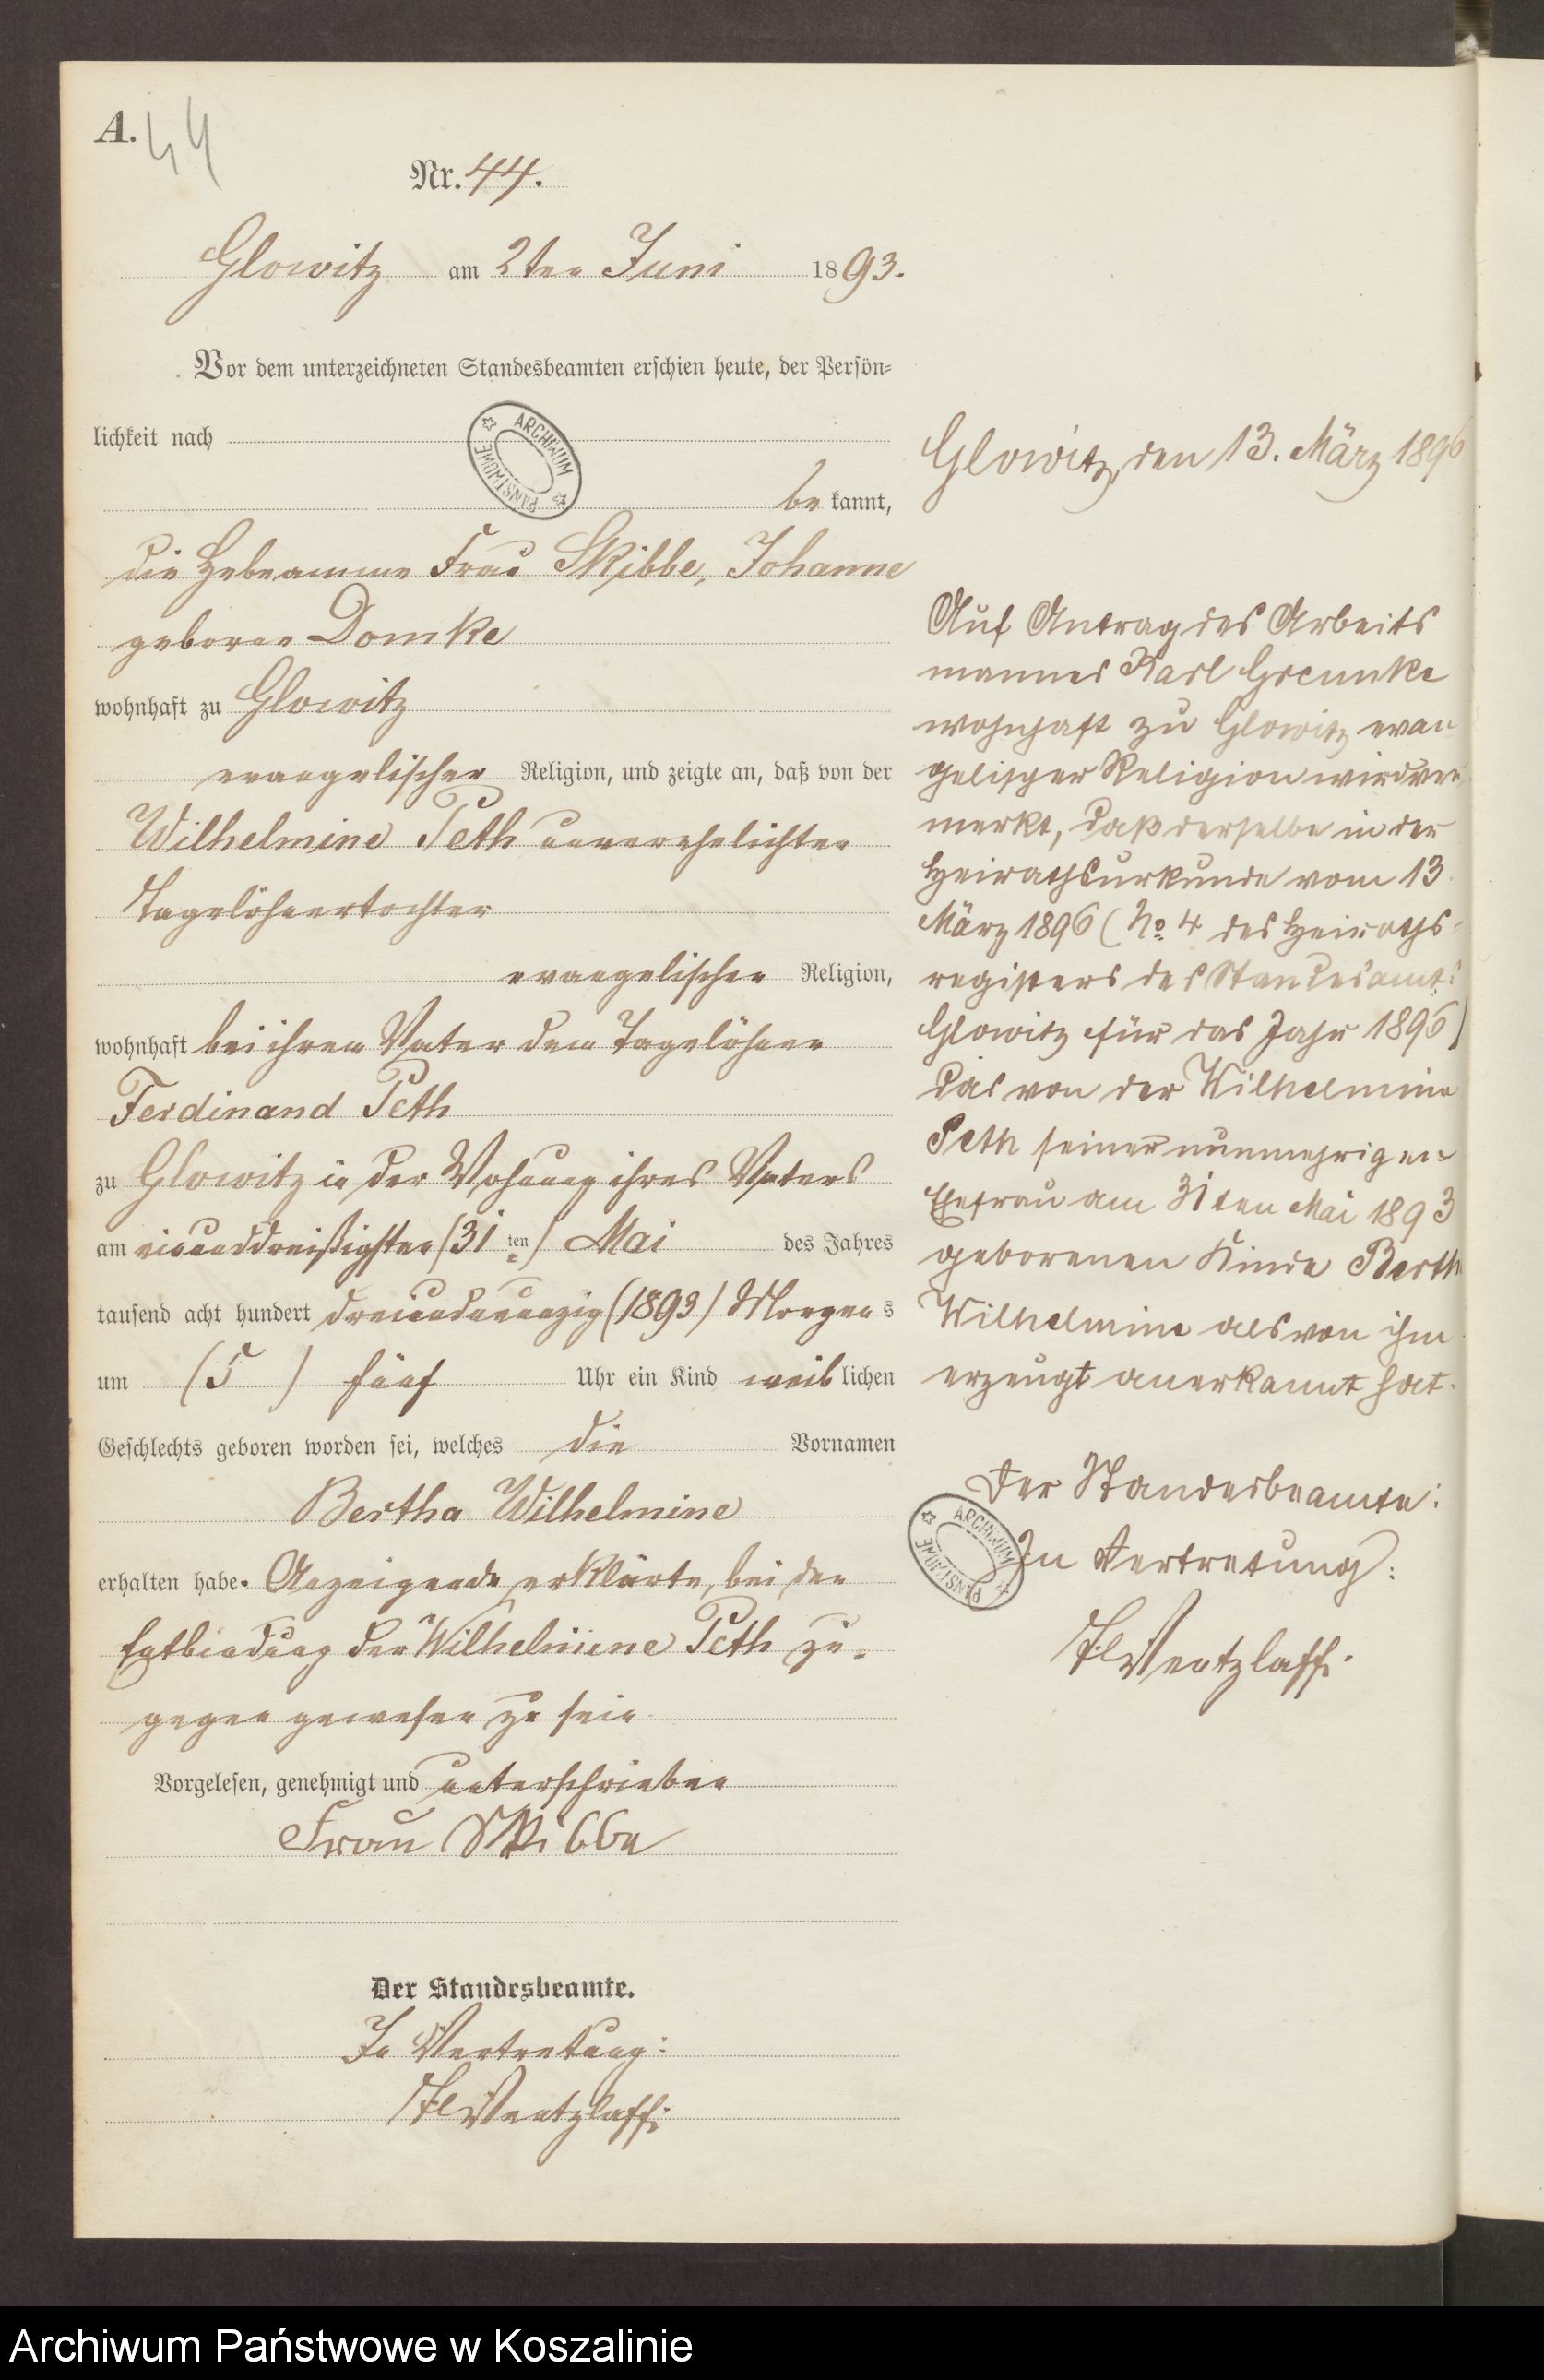 A.
44
Nr. 44.
Glowitz am 2ten Juni 1893.
Vor dem unterzeichneten Standesbeamten erschien heute, der Persön=
lichkeit nach
be kannt,
die Hebeamme Frau Skibbe, Johanne
geboren Domke
wohnhaft zu Glowitz
evangelischer Religion, und zeigte an, daß von der
Wilhelmine Peth unverehelichten
Tagelöhnertochter
evangelischer Religion,
wohnhaft bei ihrem Vater dem Tagelöhner
Ferdinand Peth
zu Glowitz in der Wohnung ihres Vaters
am einunddreißigsten (31 ten) Mai des Jahres
tausend acht hundert dreiundneunzig (1893) Morgens
um (5) fünf Uhr ein Kind weiblichen
Geschlechts geboren worden sei, welches die Vornamen
Bertha Wilhelmine
erhalten habe. Anzeigende erklärte, bei der
Entbindung der Wilhelmine Peth zu=
gegen gewesen zu sein
Vorgelesen, genehmigt und unterschrieben
Frau Skibbe
Der Standesbeamte.
In Vertretung:
Wentzlaff.
Glowitz, den 13. März 1896
Auf Antrag des Arbeits
mannes Karl Greunke
wohnhaft zu Glowitz evan
gelischer Religion wird ver
merkt, daß derselbe in der
Heirathsurkunde vom 13
März 1896 (No 4 des Heiraths=
registers des Standesamts
Glowitz für das Jahr 1896)
das von der Wilhelmine
Peth seiner nunmehrigen
Ehefrau am 31ten Mai 1893
geborenen Kinde Berth
Wilhelmine als von ihm
erzeugt anerkannt hat.
Der Standesbeamte:
In Vertretung:
Wentzlaff.
ARCHIWUM PAŃSTWOWE
ARCHIWUM PAŃSTWOWE
Archiwum Państwowe w Koszalinie